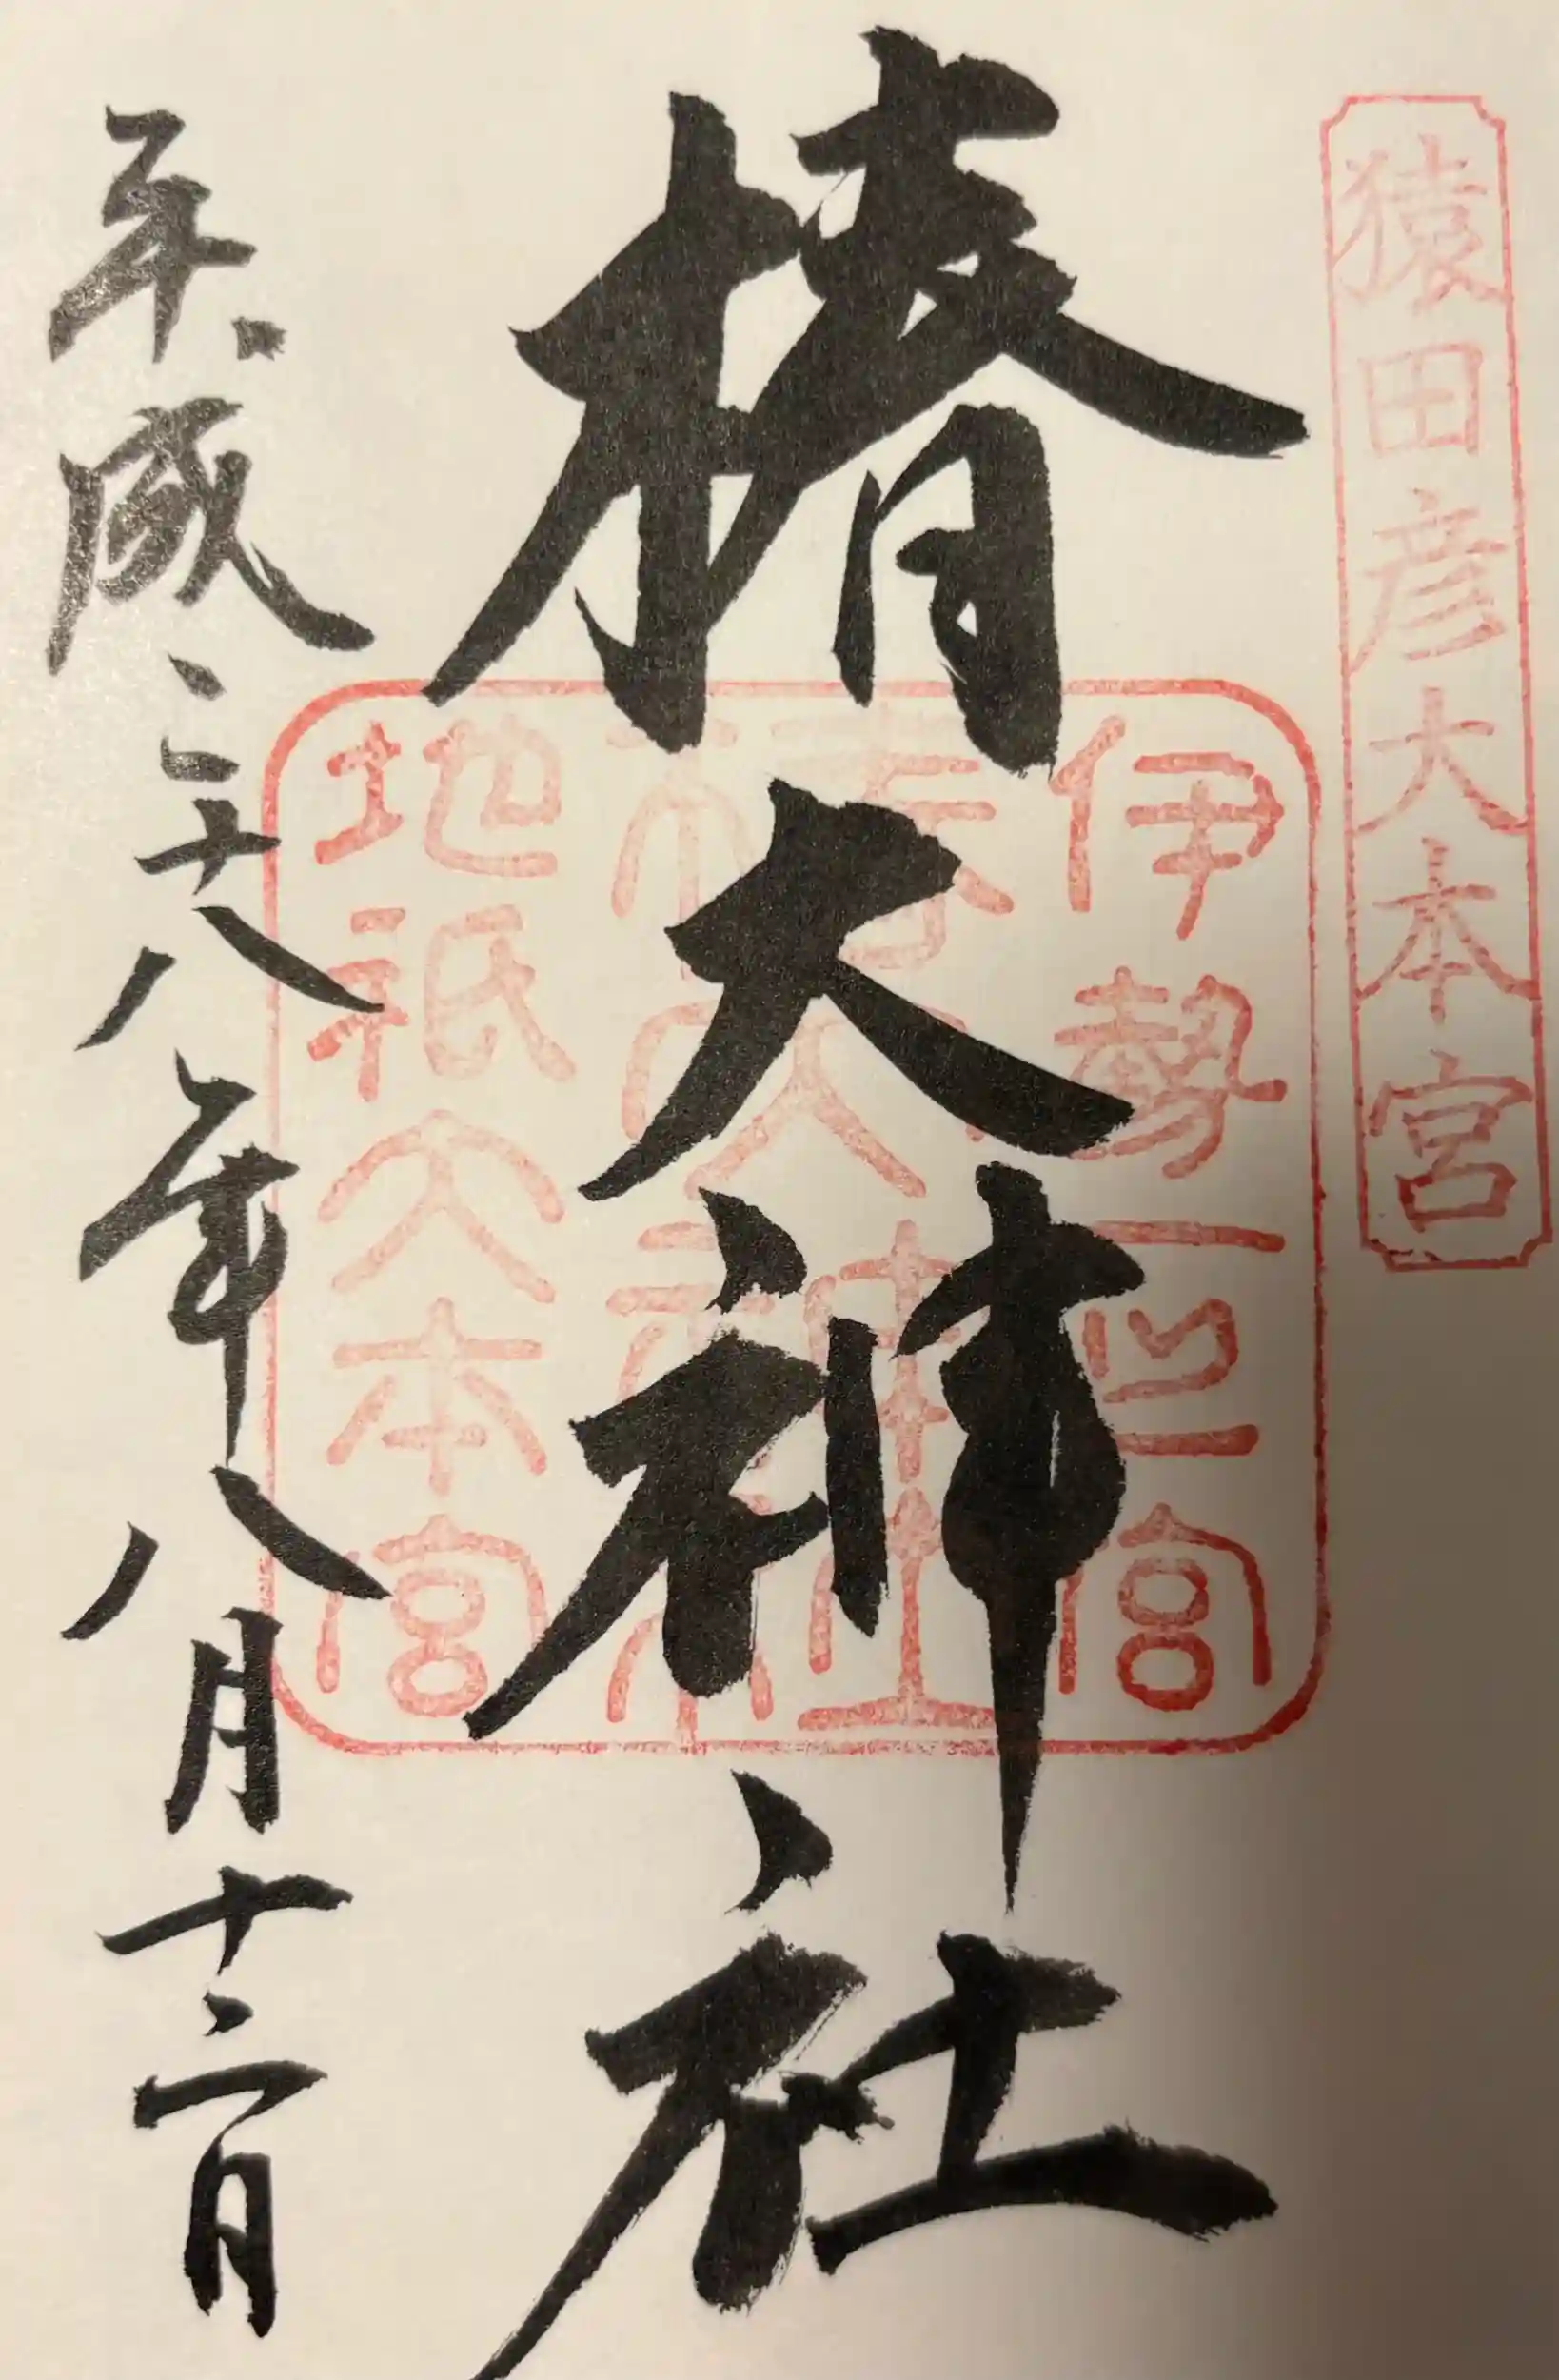 猿田彦大本宮
椿大神社
伊勢一之宮
椿大神社
地祇大本宮
平成二十八年八月十二日